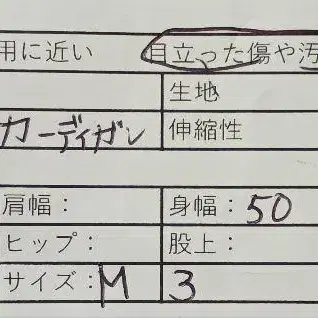 用に近い 目立った傷や汚
生地
カーディガン 伸縮性
肩幅： 身幅：50
ヒップ： 股上：
サイズ：M 3